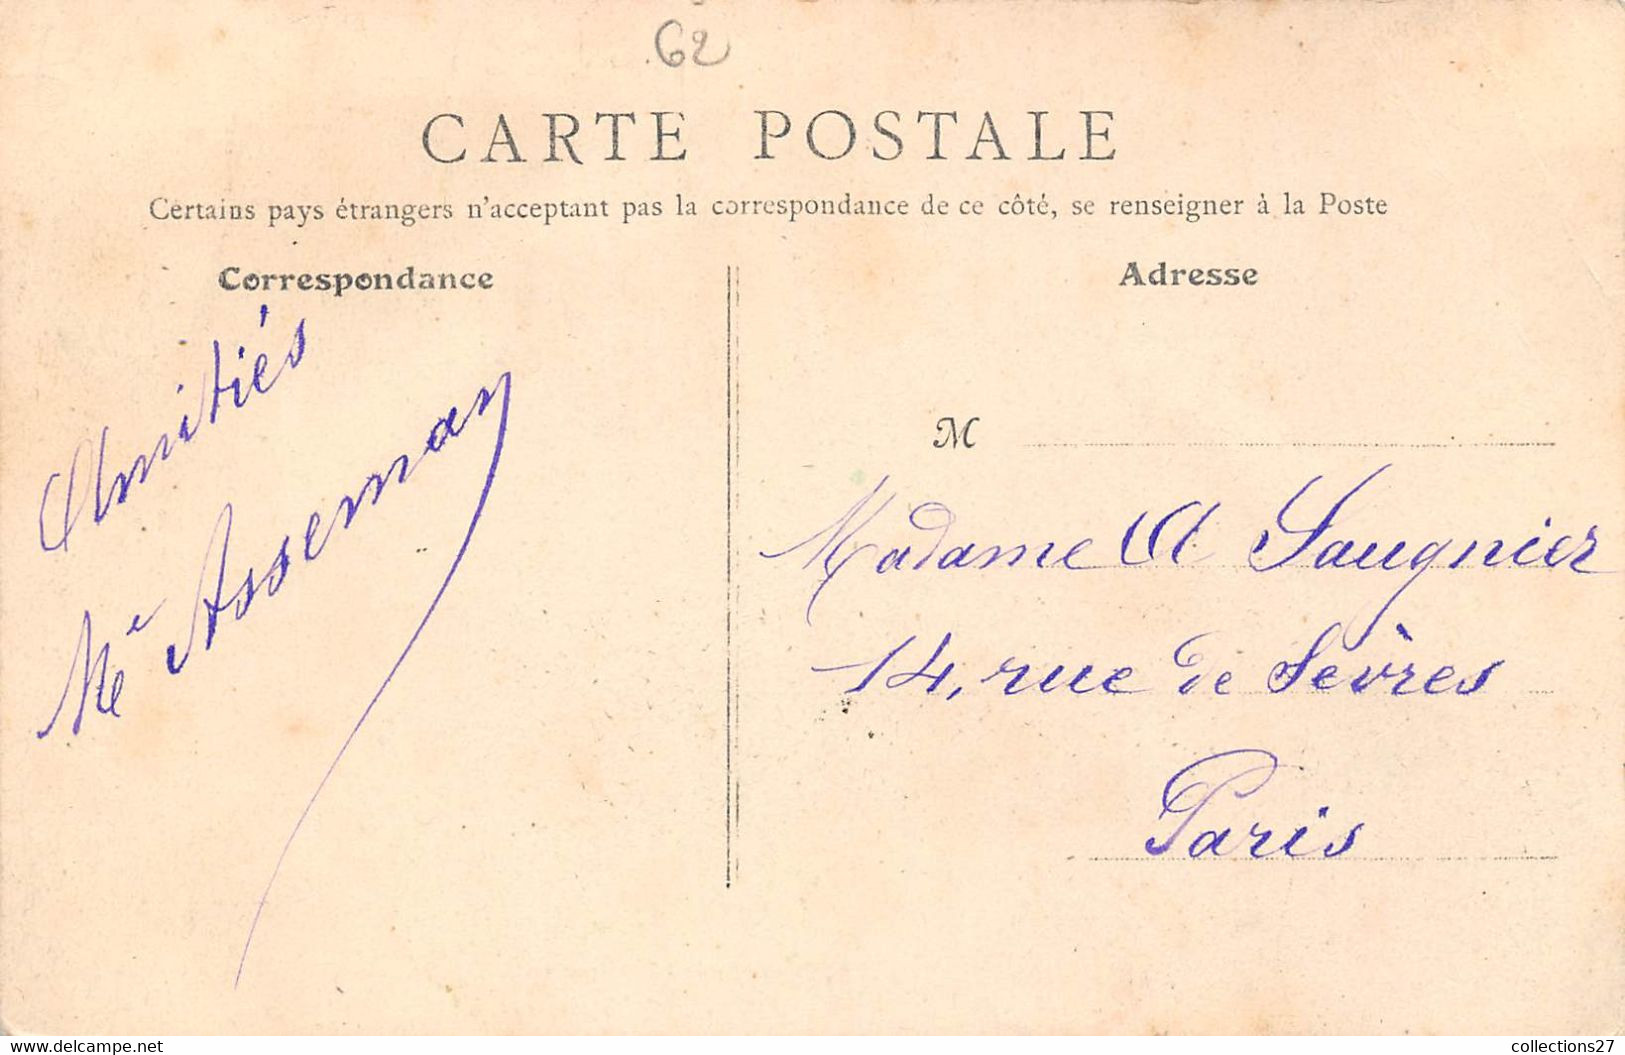 62
CARTE POSTALE
Certains pays étrangers n'acceptant pas la correspondance de ce côté, se renseigner à la Poste
Correspondance
Amitiés
Me Asseman
Adresse
M
Madame A Saugnier
14, rue de Sèvres
Paris
www.delcampe.net
collections27